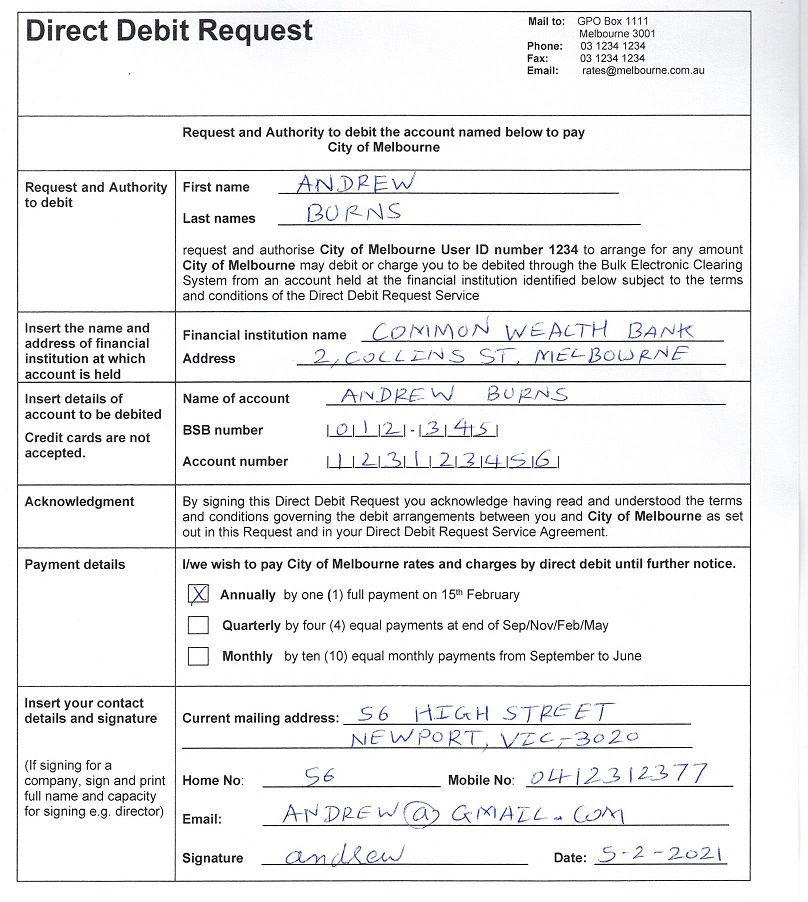 Direct Debit Request
Mail to: GPO Box 1111
Melbourne 3001
Phone: 03 1234 1234
Fax: 03 1234 1234
Email: rates@melbourne.com.au
Request and Authority to debit the account named below to pay
City of Melbourne
Request and Authority
to debit
First name ANDREW
Last names BURNS
request and authorise City of Melbourne User ID number 1234 to arrange for any amount
City of Melbourne may debit or charge you to be debited through the Bulk Electronic Clearing
System from an account held at the financial institution identified below subject to the terms
and conditions of the Direct Debit Request Service
Insert the name and
address of financial
institution at which
account is held
Financial institution name COMMON WEALTH BANK
Address 2, COLLINS ST, MELBOURNE
Insert details of
account to be debited
Credit cards are not
accepted.
Name of account ANDREW BURNS
BSB number |0|1|2|-|3|4|5|
Account number |1|2|3|1|2|3|4|5|6|
Acknowledgment
By signing this Direct Debit Request you acknowledge having read and understood the terms
and conditions governing the debit arrangements between you and City of Melbourne as set
out in this Request and in your Direct Debit Request Service Agreement.
Payment details
I/we wish to pay City of Melbourne rates and charges by direct debit until further notice.
X Annually by one (1) full payment on 15th February
Quarterly by four (4) equal payments at end of Sep/Nov/Feb/May
Monthly by ten (10) equal monthly payments from September to June
Insert your contact
details and signature
(If signing for a
company, sign and print
full name and capacity
for signing e.g. director)
Current mailing address: 56 HIGH STREET
NEWPORT, VIC-3020
Home No: 56 Mobile No: 0412312377
Email: ANDREW@GMAIL.COM
Signature andrew Date: 5-2-2021